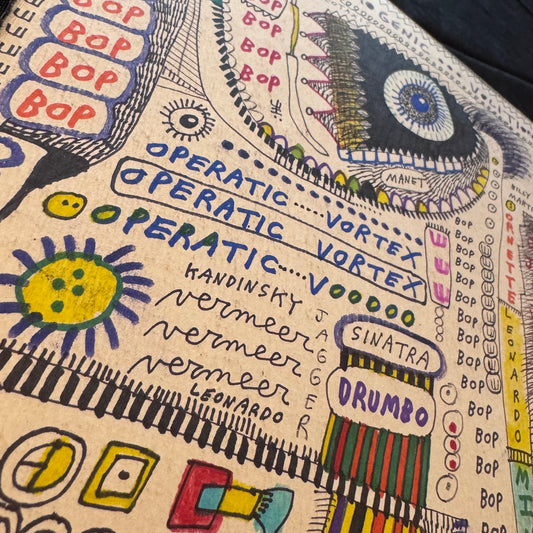 BOP
BOP
BOP
BOP
BOP
BOP
BOP
BOP
MANET
OPERATIC.....VORTEX
OPERATIC VORTEX
OPERATIC....VOODOO
KANDINSKY
vermeer
vermeer
vermeer
LEONARDO
JAGGER
SINATRA
DRUMBO
BOP
BOP
BOP
BOP
BOP
BOP
BOP
BOP
BOP
BOP
BOP
BOP
BOP
BOP
ORNETTE
LEONARDO